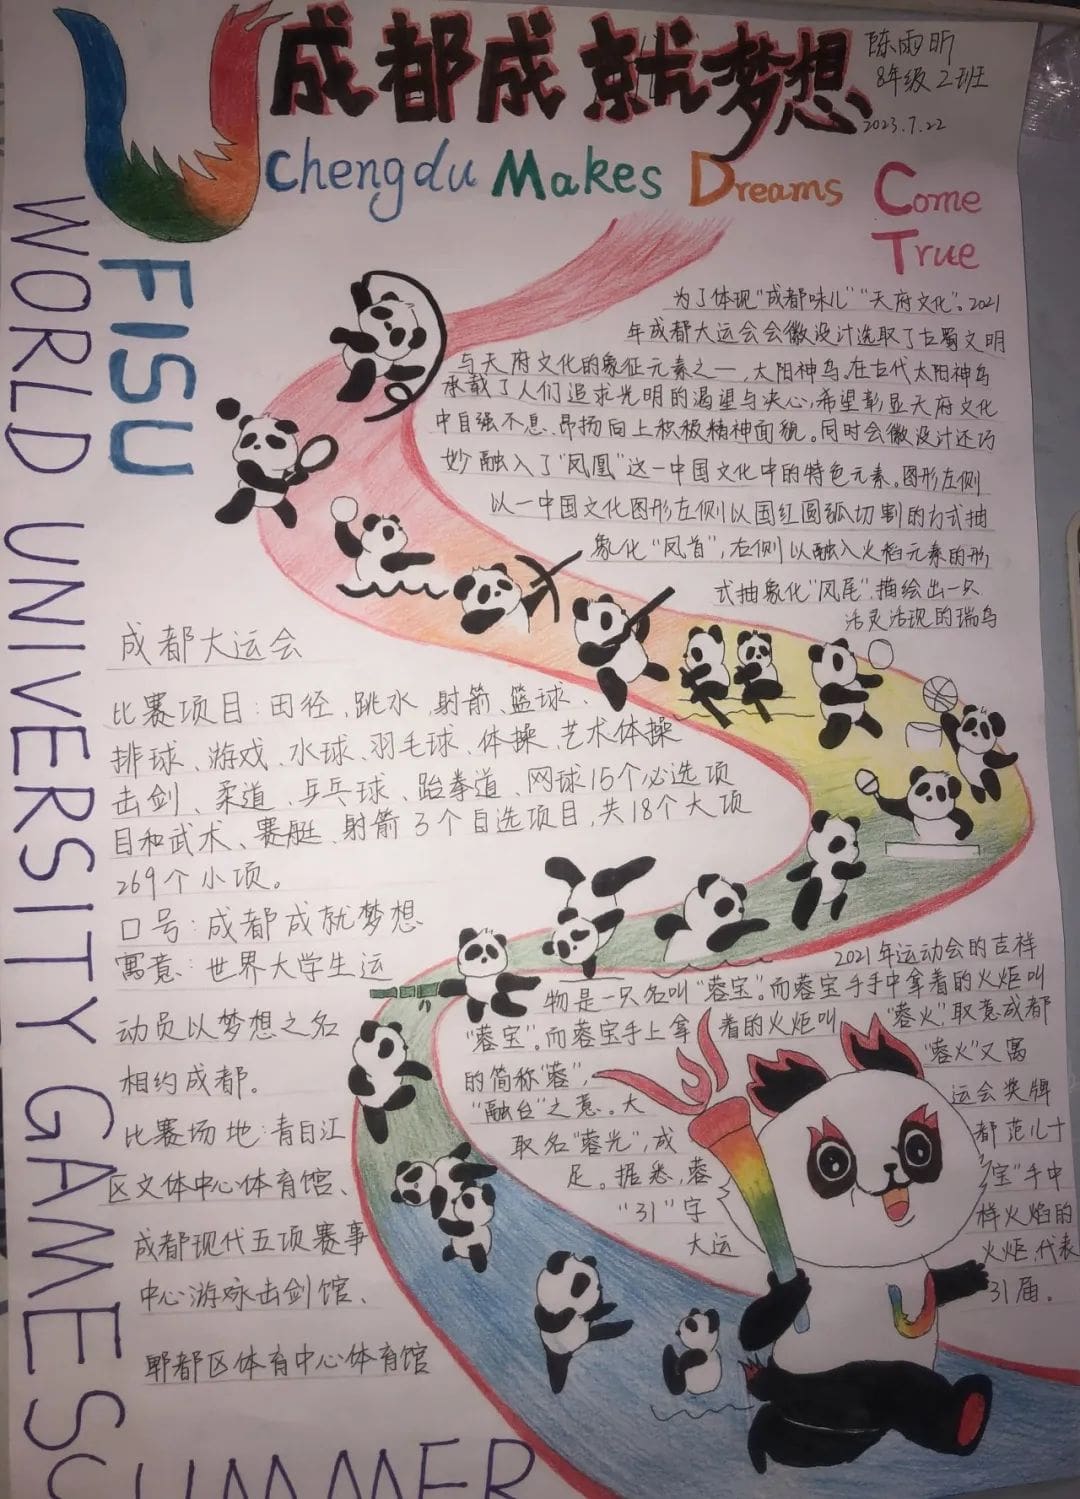 成都成就梦想
陈雨昕
8年级2班
2023.7.22
Chengdu Makes Dreams Come
True
FISU
WORLD UNIVERSITY GAMES
SUMMER
为了体现"成都味儿""天府文化"。2021
年成都大运会会徽设计选取了古蜀文明
与天府文化的象征元素之一,太阳神鸟,在古代太阳神鸟
承载了人们追求光明的渴望与决心,希望彰显天府文化
中自强不息、昂扬向上积极精神面貌。同时会徽设计还巧
妙融入了"凤凰"这一中国文化中的特色元素。图形左侧
以一中国文化图形左侧以国红圆弧切割的方式抽
象化"凤首",右侧以融入火焰元素的形
式抽象化"凤尾",描绘出一只
活灵活现的瑞鸟
成都大运会
比赛项目:田径、跳水、射箭、篮球、
排球、游戏、水球、羽毛球、体操、艺术体操
击剑、柔道、乒乓球、跆拳道、网球15个必选项
目和武术、赛艇、射箭3个自选项目,共18个大项
269个小项。
口号:成都成就梦想
寓意:世界大学生运
动员以梦想之名
相约成都。
比赛场地:青白江
区文体中心体育馆、
成都现代五项赛事
中心游泳击剑馆、
郫都区体育中心体育馆
2021年运动会的吉祥
物是一只名叫"蓉宝"。而蓉宝手手中拿着的火炬叫
"蓉宝"。而蓉宝手上拿着的火炬叫"蓉火",取意成都
的简称"蓉","蓉火"又寓
"融合"之意。大运会奖牌
取名"蓉光",成都范儿十
足。据悉,蓉宝"手中
"31"字样火焰的
大运火炬,代表
31届。